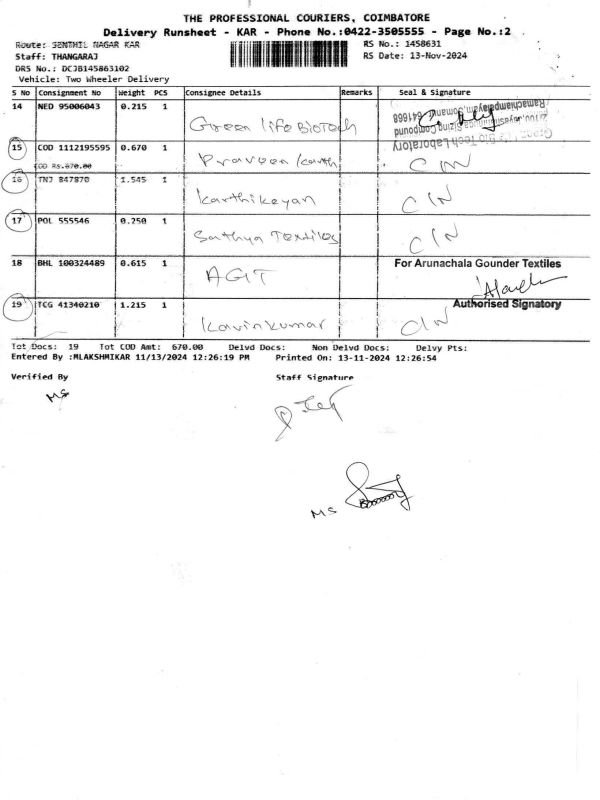 THE PROFESSIONAL COURIERS, COIMBATORE
Delivery Runsheet - KAR - Phone No.:0422-3505555 - Page No.:2
Route: SENTHIL NAGAR KAR
RS No.: 1458631
Staff: THANGARAJ
RS Date: 13-Nov-2024
DRS No.: DCJB145863102
Vehicle: Two Wheeler Delivery
S No Consignment No Weight PCS Consignee Details Remarks Seal & Signature
14 NED 95006043 0.215 1 Green life BioTech
Ramachiampalayam, Somanur, 641668
Sizing Compound
Bio Tech Laboratory
15 COD 1112195595 0.670 1 Praveen Karth
COD Rs.670.00
CIN
16 TNJ 847870 1.545 1 Karthikeyan CIN
17 POL 555546 0.250 1 Sathya Textiles CIN
18 BHL 100324489 0.615 1 AGIT
For Arunachala Gounder Textiles
Authorised Signatory
19 TCG 41340210 1.215 1 Kavinkumar CIN
Tot Docs: 19 Tot COD Amt: 670.00 Delvd Docs: Non Delvd Docs: Delvy Pts:
Entered By :MLAKSHMIKAR 11/13/2024 12:26:19 PM Printed On: 13-11-2024 12:26:54
Verified By Staff Signature
MS
MS